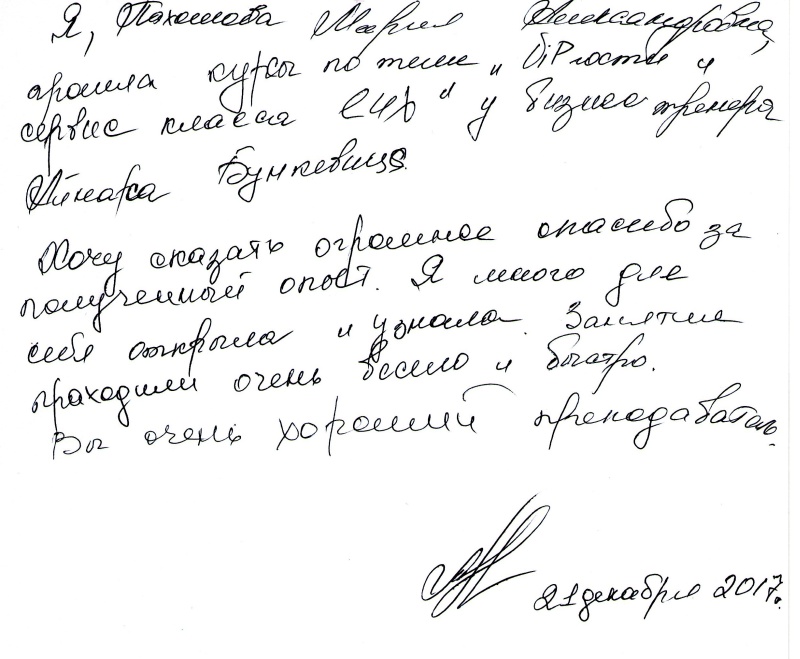 Я, Пахомова Мария Александровна,
прошла курсы по теме „ ViPгости и
сервис класса LUX" у бизнес тренера
Айнарса Бункевица.
Хочу сказать огромное спасибо за
полученный опыт. Я много для
себя открыла и узнала. Занятия
проходили очень весело и быстро.
Вы очень хороший преподаватель.
21 декабря 2017г.